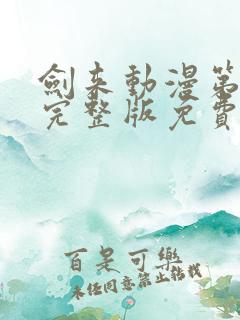 劍來動漫第
完整版免費
百是可樂
未經同意禁止轉載